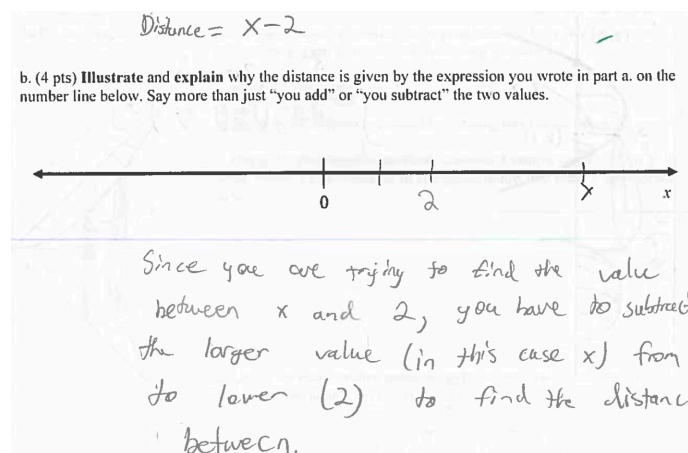 Distance = X-2
b. (4 pts) Illustrate and explain why the distance is given by the expression you wrote in part a. on the
number line below. Say more than just “you add” or “you subtract” the two values.
0 2 x x
Since you are trying to find the value
between x and 2, you have to subtract
the larger value (in this case x) from
to lower (2) to find the distanc
between.